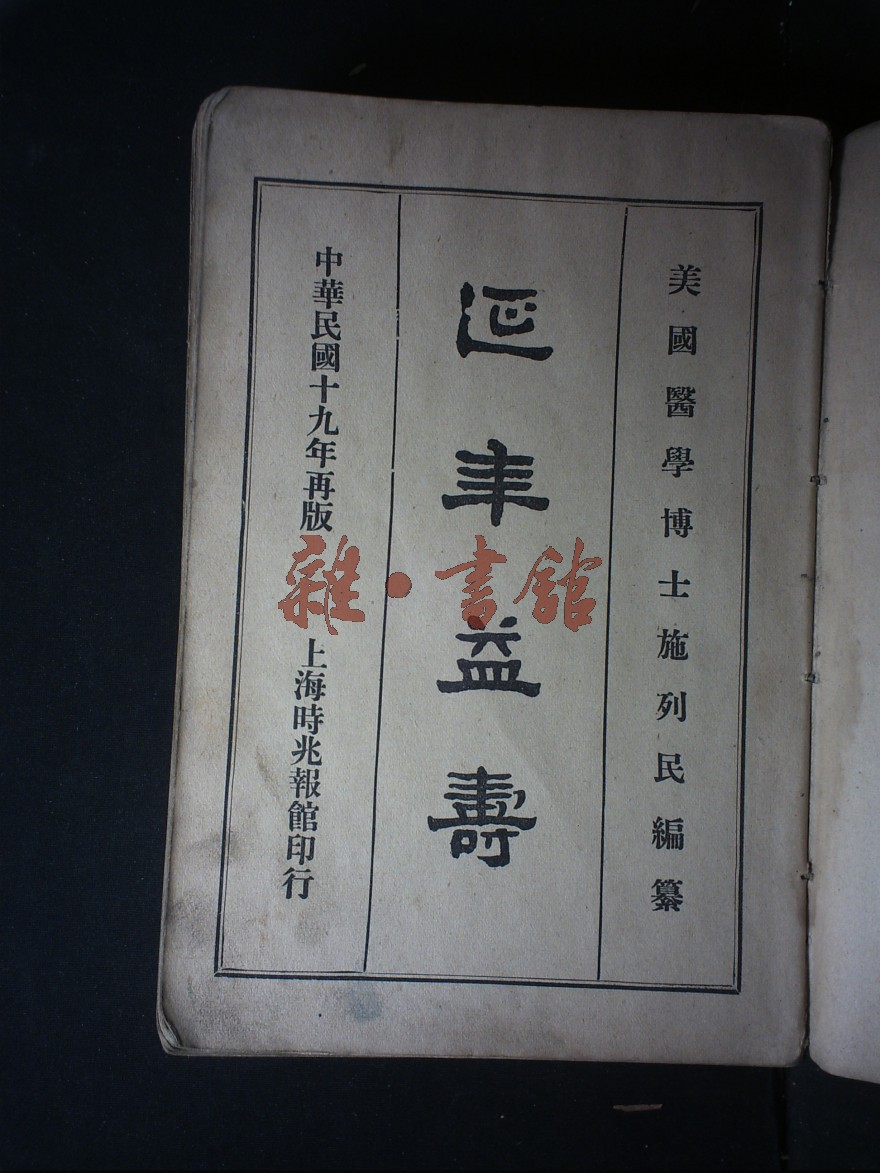 美國醫學博士施列民編纂
延年益壽
中華民國十九年再版 上海時兆報館印行
雜·書館